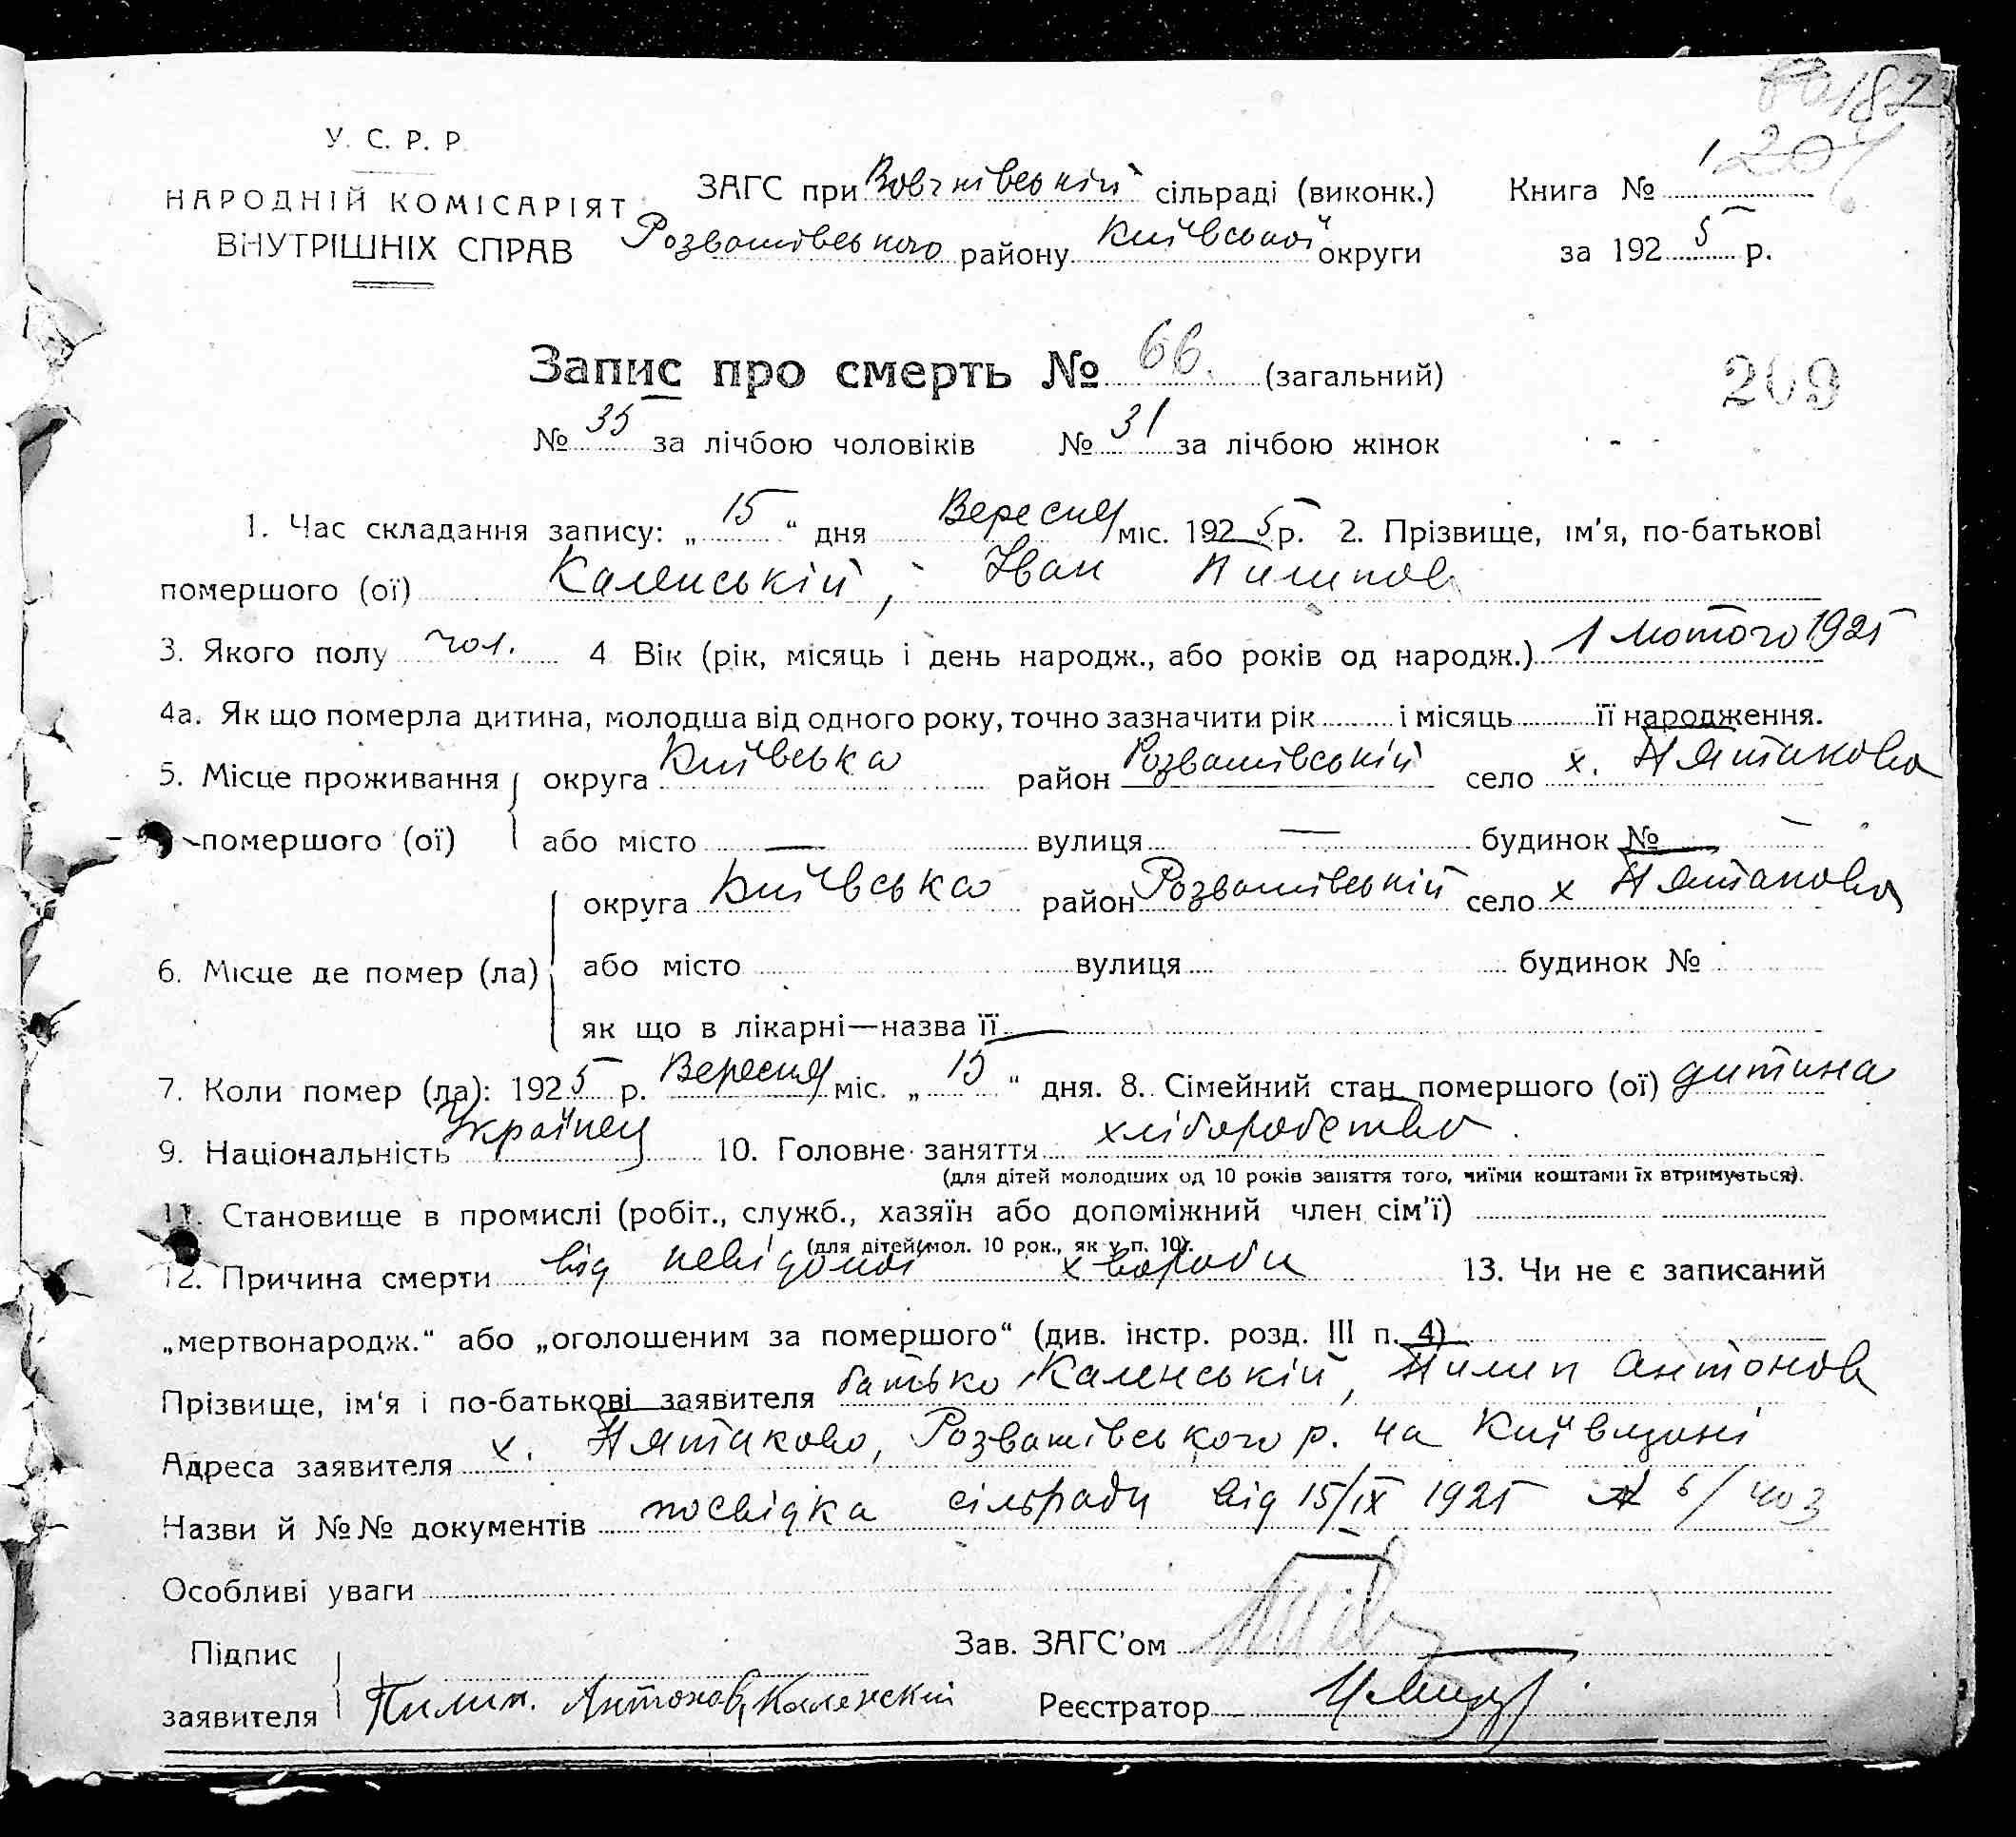 182
У. С. Р. Р.
НАРОДНІЙ КОМІСАРІЯТ
ВНУТРІШНІХ СПРАВ
ЗАГС при Вовчківській сільраді (виконк.) Книга № 1
Розважівського району Київської округи за 1925 р.
Запис про смерть № 66. (загальний)
209
№ 35 за лічбою чоловіків № 31 за лічбою жінок
1. Час складання запису: „15“ дня Вересня міс. 1925 р. 2. Прізвище, ім'я, по-батькові
помершого (ої) Каленській, Іван Пилипов
3. Якого полу чол. 4 Вік (рік, місяць і день народж., або років од народж.) 1 Лютого 1925
4а. Як що померла дитина, молодша від одного року, точно зазначити рік і місяць її народження.
5. Місце проживання округа Київська район Розважівській село х. Пятакова
помершого (ої) або місто — вулиця — будинок № —
округа Київська район Розважівській село х Пятакова
6. Місце де помер (ла) або місто вулиця будинок №
як що в лікарні—назва її —
7. Коли помер (ла): 1925 р. Вересня міс. „15“ дня. 8. Сімейний стан помершого (ої) дитина
9. Національність Українец 10. Головне заняття хліборобство.
(для дітей молодших од 10 років заняття того, чиїми коштами їх втримується).
11. Становище в промислі (робіт., служб., хазяїн або допоміжний член сім'ї)
(для дітей мол. 10 рок., як у п. 10).
12. Причина смерти від невідомої хвороби 13. Чи не є записаний
„мертвонародж.“ або „оголошеним за помершого“ (див. інстр. розд. III п. 4) —
Прізвище, ім'я і по-батькові заявителя батько Каленській, Пилип Антонов
Адреса заявителя х. Пятаково, Розважівського р. на Київщині
Назви й №№ документів посвідка сільради від 15/IX 1925 № 6/403
Особливі уваги
Підпис
Зав. ЗАГС'ом
заявителя Пилип. Антонов, Каленскій Реєстратор